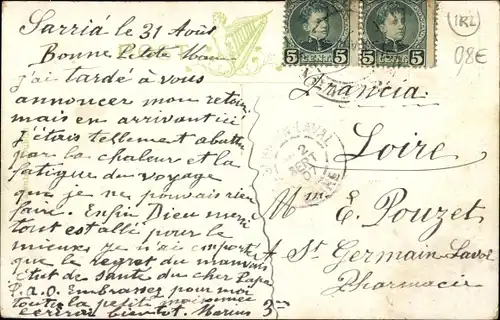 Sarriá le 31 Août
Bonne Petite Mam
j'ai tardé à vous
annoncer mon retour
mais en arrivant ici
j'étais tellement abattu
par la chaleur et la
fatigue du voyage
que je ne pouvais rien
faire. Enfin Dieu merci
tout est allé pour le
mieux je n'ai emporté
que le regret du mauvais
état de santé du cher Papa
P.a.O. Embrassez pour moi
toute la petite maisonnée
écrirai bientôt. Marius
5 CENT 5
5 CENT 5
(IRL)
0,8€
Francia
Loire
LAVAL
2
SEPT
07
LOIRE
Mme E. Pouzet
A St Germain Laval
Pharmacie
3=